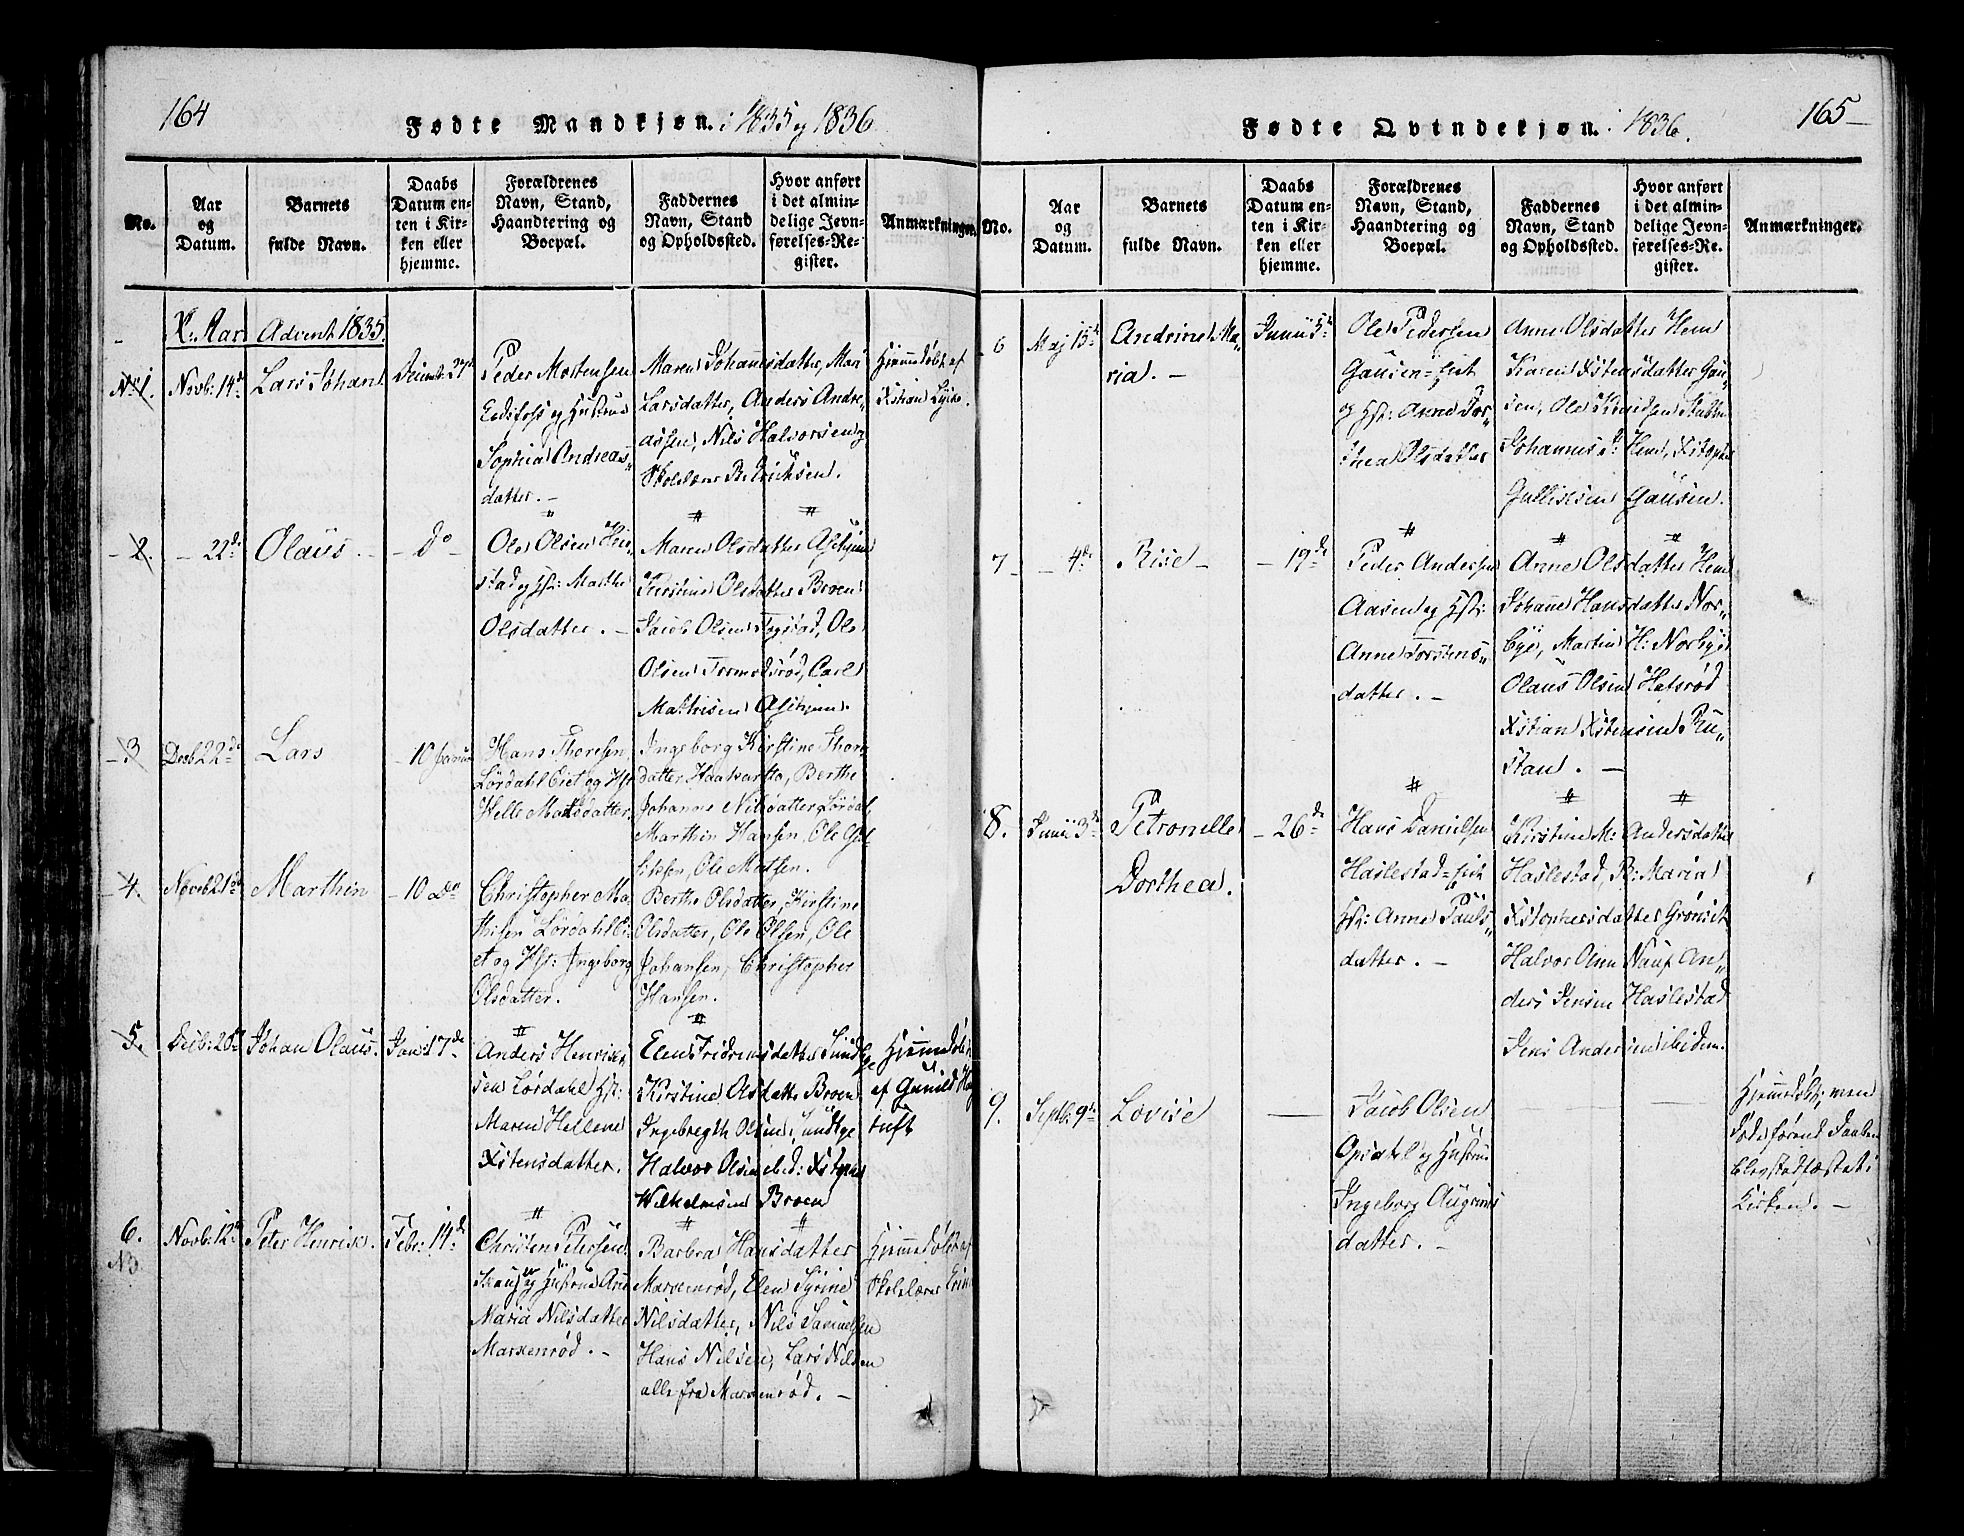 164
Fødte Mandkjøn. i 1835 og 1836
No.
Aar
og
Datum.
Barnets
fulde Navn.
Daabs
Datum en-
ten i Kir-
ken eller
hjemme.
Forældrenes
Navn, Stand,
Haandtering og
Boepæl.
Faddernes
Navn, Stand
og Opholdssted.
Hvor anført
i det almin-
delige Jevn-
førelses-Re-
gister.
Anmærkninger.
K: Aar Advent 1835.
No 1.
Novb: 14de
Lars Johan
Decemb: 27de
Peder Mortensen
og Hustrue
Sophia Andreas„
datter. –
Maren Johannesdatter, Mari
Larsdatter, Anders Andre„
assen, Nils Halvorsen og
Skolelærer Fredricksen.
Hjemmedøbt af
Kristian
2.
– 22de
Olaus. –
– do –
Ole Olsen
stad og Hst: Marthe
Olsdatter. –
Maren Olsdatter
Kirstine Olsdatter Broen
Jacob Olsen Ole
Olsen Tormodsrød, Carl
Mathisen
3
Decb 22de
Lars
– 10 Januar
Hans Thoresen
Lørdahl Eiet og Hst
Helle Madsdatter.
Ingeborg Kirstine Thore
datter Berthe
Johanne Nilsdatter Lørdal,
Marthin Hansen, Ole
Ole Madsen.
4.
Novb 21de
Marthin
– 10 do
Christopher Ma
thisen Lørdahl Ei
et og Hst: Ingeborg
Olsdatter.
Berthe Olsdatter, Kirstine
Olsdatter, Ole Olsen, Ole
Johansen, Christopher
Hansen.
5.
Decb: 20de
Johan Olaus.
Jan: 17de
Anders Henrik„
sen Lørdahl Hst:
Maren Hellene
Xstensdatter.
Elen Fridrensdatter Sundbye
Kirstine Olsdatter Broen
Ingebregth Olsen
Halvor Olsen ibid:
Wilhelmsen Broen
Hjemmedøbt
af Gunild
tuft
6.
NB
Novb: 12te
Peter Henrik.
Febr: 14de
Christen Petersen
Skaug og Hustrue Ane
Maria Nilsdatter
Markenrød. –
Barbra Hansdatter
Markenrød, Elen Syrine
Nilsdatter, Nils Samuelsen
Hans Nilsen, Lars Nilsen
alle fra Markenrød. –
Hjemmedøbt af
Skolelærer
165 –
Fødte Qvindekjøn. i 1836.
No.
Aar
og
Datum.
Barnets
fulde Navn.
Daabs
Datum en-
ten i Kir-
ken eller
hjemme.
Forældrenes
Navn, Stand,
Haandtering og
Boepæl.
Faddernes
Navn, Stand
og Opholdssted.
Hvor anført
i det almin-
delige Jevn-
førelses-Re-
gister.
Anmærkninger.
6
Maj 15de
Andrine Ma„
ria. –
Junii 5te
Ole Pedersen
Gausen-eiet
og Hst: Anne Dor„
thea Olsdatter
Anne Olsdatter Hem
Karen Xstensdatter Gau„
sen, Ole
Johannes P: Hem,
Gulliksen Gausen.
7 –
– 4de
Risè –
– 19de
Peder Andersen
Aasen og Hst:
Anne Torstens„
datter. –
Anne Olsdatter Hem
Johanne Hansdatter Nor„
bye, Martin H: Norbye
Olaus Olsen Hatsrød
Xstian Xstensen Ru„
stan. –
8.
Junii 3de
Petronelle
Dorthea.
– 26de
Hans Danielsen
Haslestad-eiet
Hst: Anne Pauls„
datter. –
Kirstine M: Andersdatter
Haslestad, B: Maria
Xstophersdatter Grønsit
Halvor Olsen Nauf An„
ders Jensen Haslestad
Jens Andersen ibidem.
9.
Septb: 9de
Lovise
Jacob Olsen
Opsahl og Hustrue
Ingeborg
datter. –
Hjemmedøbt, men
døde førend Daaben
blev stadfæstet i
Kirken. –